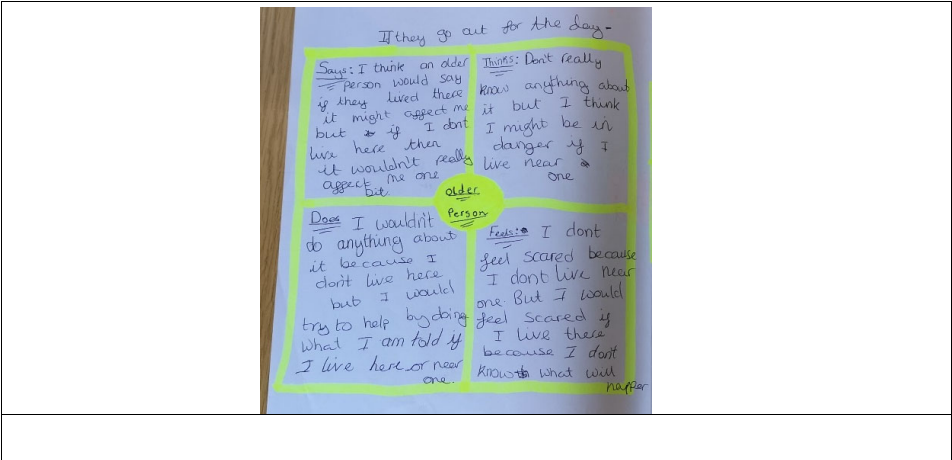 If they go out for the day-
Says: I think an older
person would say
if they lived there
it might affect me
but if I dont
live here then
it wouldn't really
affect me one
bit
Thinks: Don't really
know anything about
it but I think
I might be in
danger if I
live near
one
older
Person
Does I wouldn't
do anything about
it because I
don't live here
but I would
try to help by doing
what I am told if
I live here or near
one.
Feels: I dont
feel scared because
I dont live near
one. But I would
feel scared if
I live there
because I don't
know what will
happen